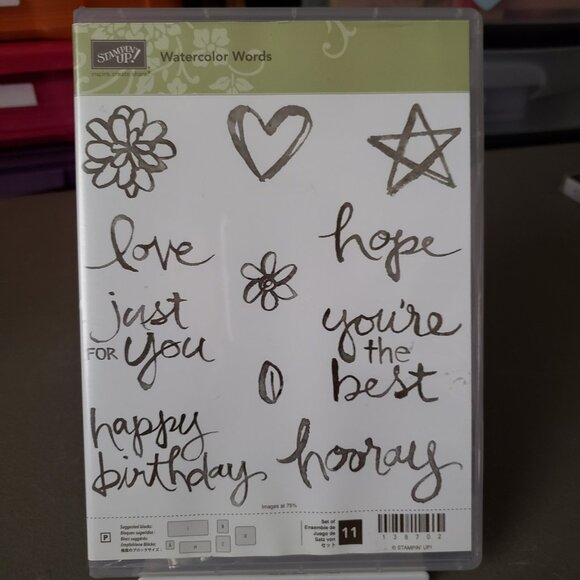 STAMPIN' UP!
inspire.create.share.
Watercolor Words
love
hope
just
FOR you
you're
the
best
happy
birthday
hooray
Images at 75%
P
Suggested blocks:
Bloques sugeridos:
Blocs suggérés:
Empfohlene Blöcke:
Set of
Ensemble de
Juego de
Satz von
セット
11
138702
© STAMPIN' UP!